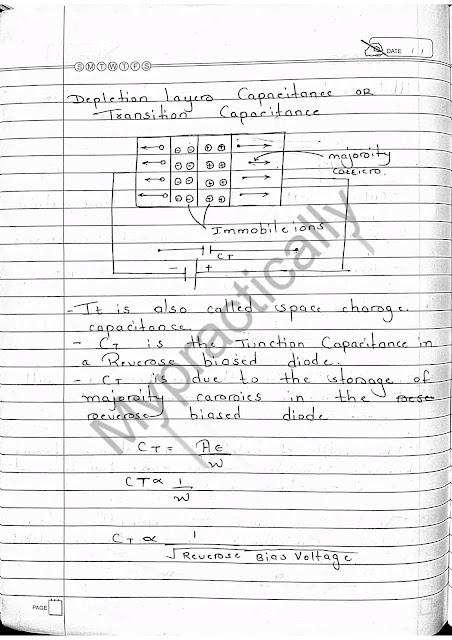 S M T W T F S
DATE / /
Depletion layers Capacitance OR
Transition Capacitance
majority
carriers.
Immobile ions
CT
- +
- It is also called space charge
capacitance
- CT is the Junction Capacitance in
a Reverse biased diode.
- CT is due to the storage of
majority carriers in the
reverse biased diode
CT = Aϵ
W
CT ∝ 1
W
CT ∝ 1
√Reverse Bias Voltage
PAGE
Mypractically